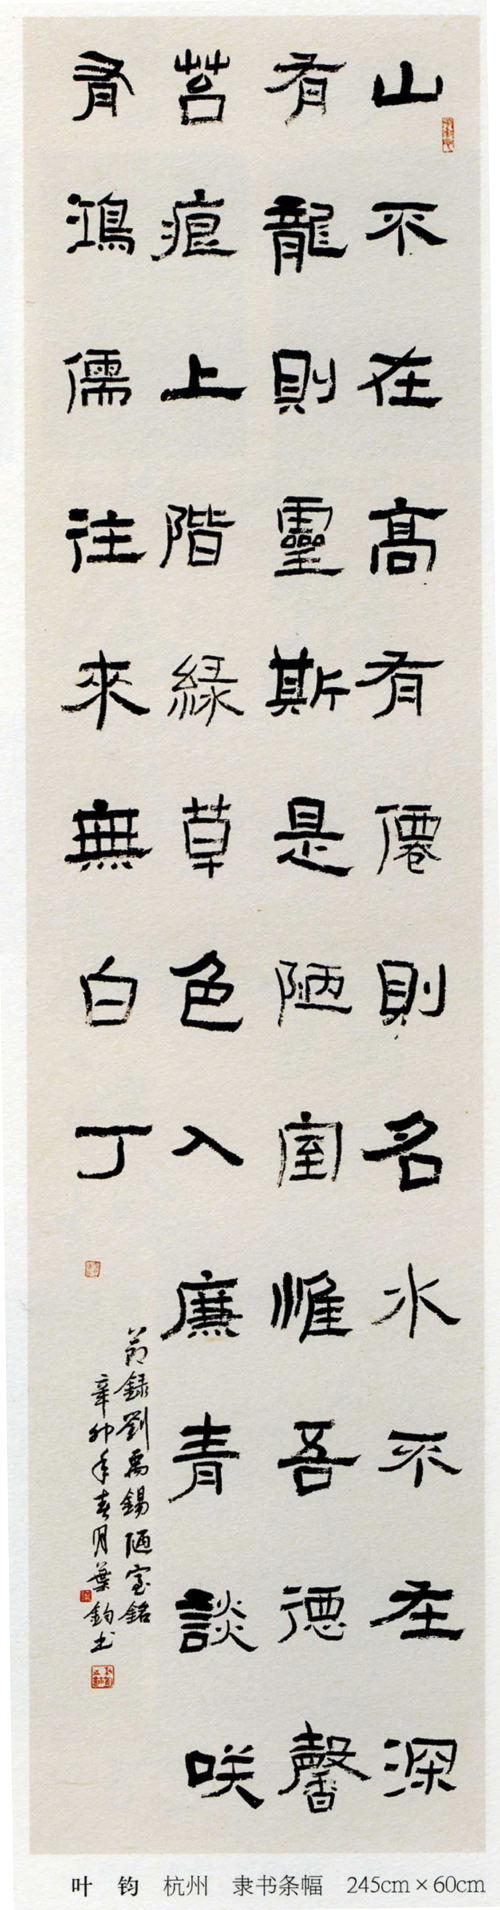 山不在高有僊則名水不在深
有龍則靈斯是陋室惟吾德馨
苔痕上階緑草色入廉青談咲
有鴻儒往來無白丁
節録劉禹錫陋室銘
辛卯年春月葉鈞书
叶 钧 杭州 隶书条幅 245cm×60cm